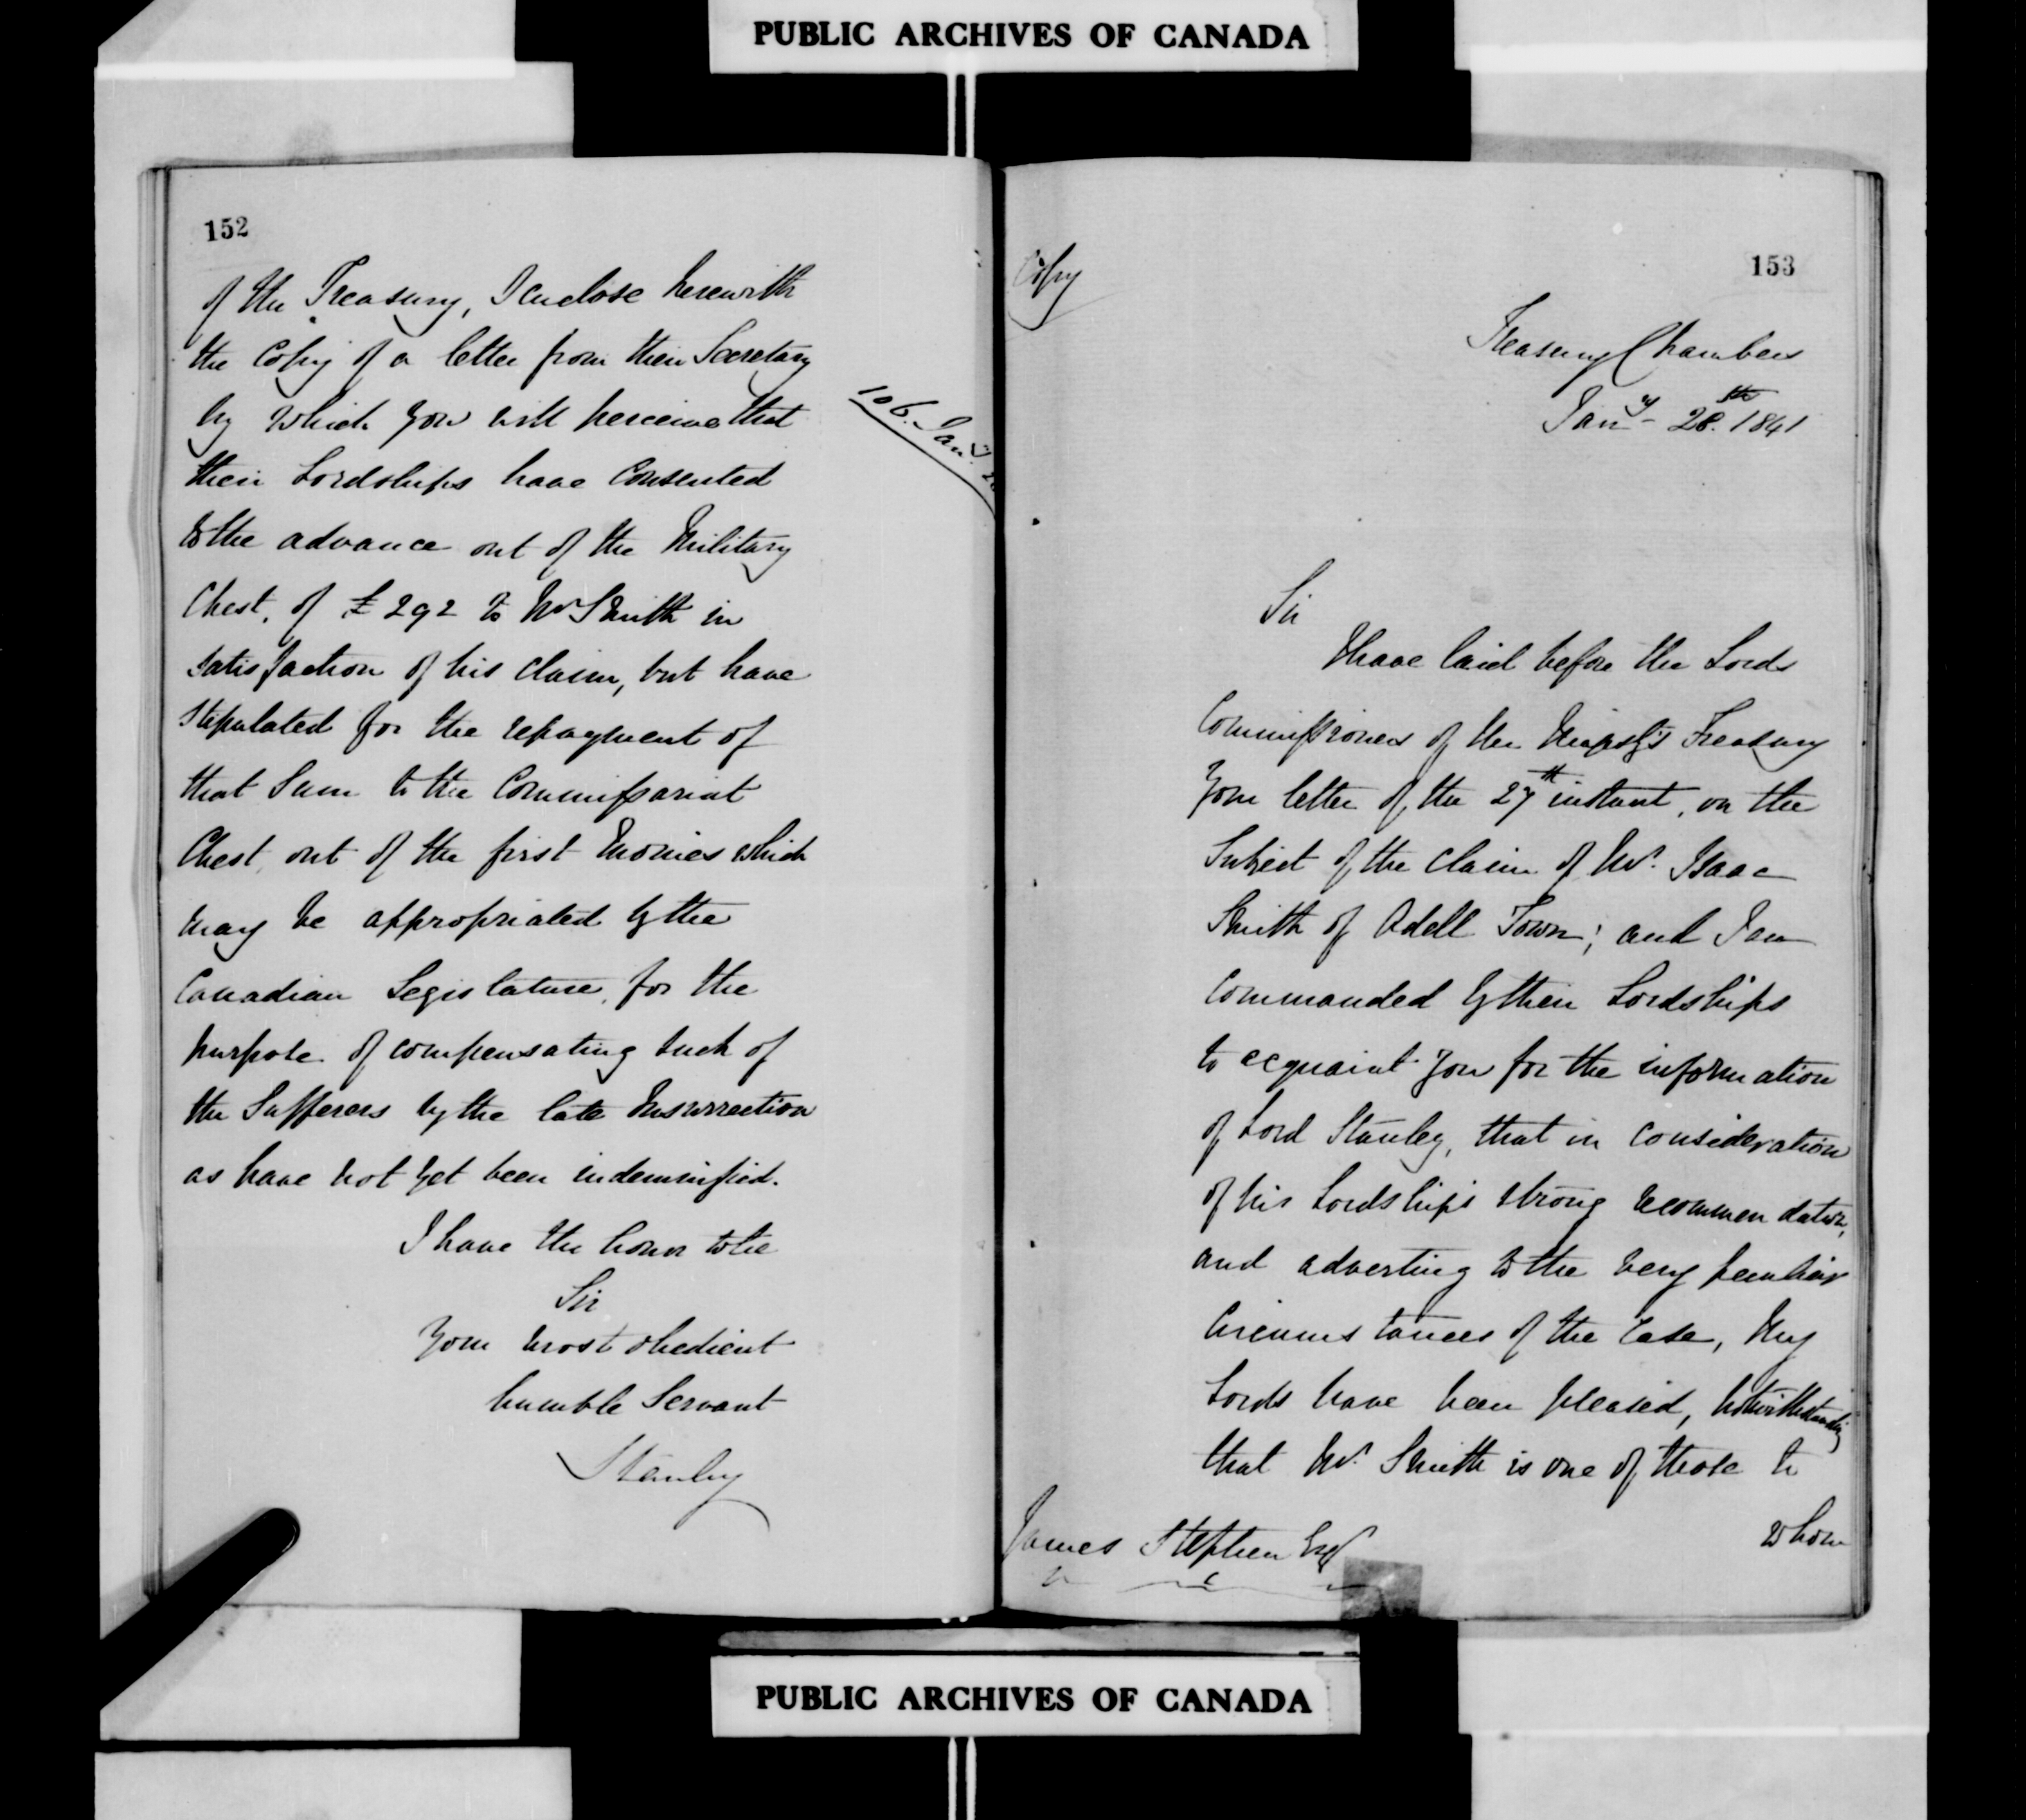 PUBLIC ARCHIVES OF CANADA
152
of the Treasury, I enclose herewith
the Copy of a letter from their Secretary
by which you will perceive that
their Lordships have consented
to the advance out of the Military
Chest, of £292 to Mr Smith in
satisfaction of his claim, but have
stipulated for the repayment of
that Sum to the Commissariat
Chest, out of the first Monies which
may be appropriated by the
Canadian Legislature, for the
purpose of compensating such of
the Sufferers by the late Insurrection
as have not yet been indemnified.
I have the honor to be
Sir
Your most obedient
humble Servant
Stanley
106. Jany. 28
Copy
153
Treasury Chambers
Jany - 28th. 1841
Sir
I have laid before the Lords
Commissioners of Her Majesty's Treasury
Your letter of the 27th instant, on the
Subject of the claim of Mr. Isaac
Smith of Odell Town; and I am
commanded by their Lordships
to acquaint you for the information
of Lord Stanley, that in consideration
of his Lordship's strong recommendation,
and adverting to the very peculiar
Circumstances of the Case, My
Lords have been pleased, notwithstanding
that Mr. Smith is one of those to
whom
James Stephen Esqr
PUBLIC ARCHIVES OF CANADA